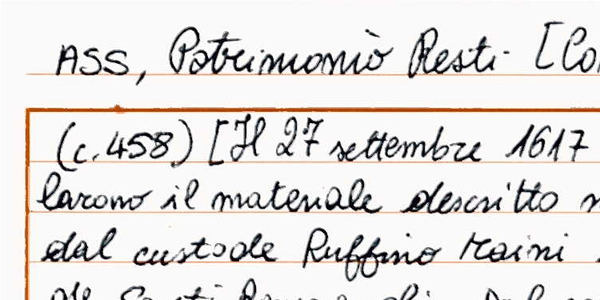 ASS, Patrimonio Resti [Co
(c. 458) [Il 27 settembre 1617
larono il materiale descritto n
dal custode Ruffino Maini